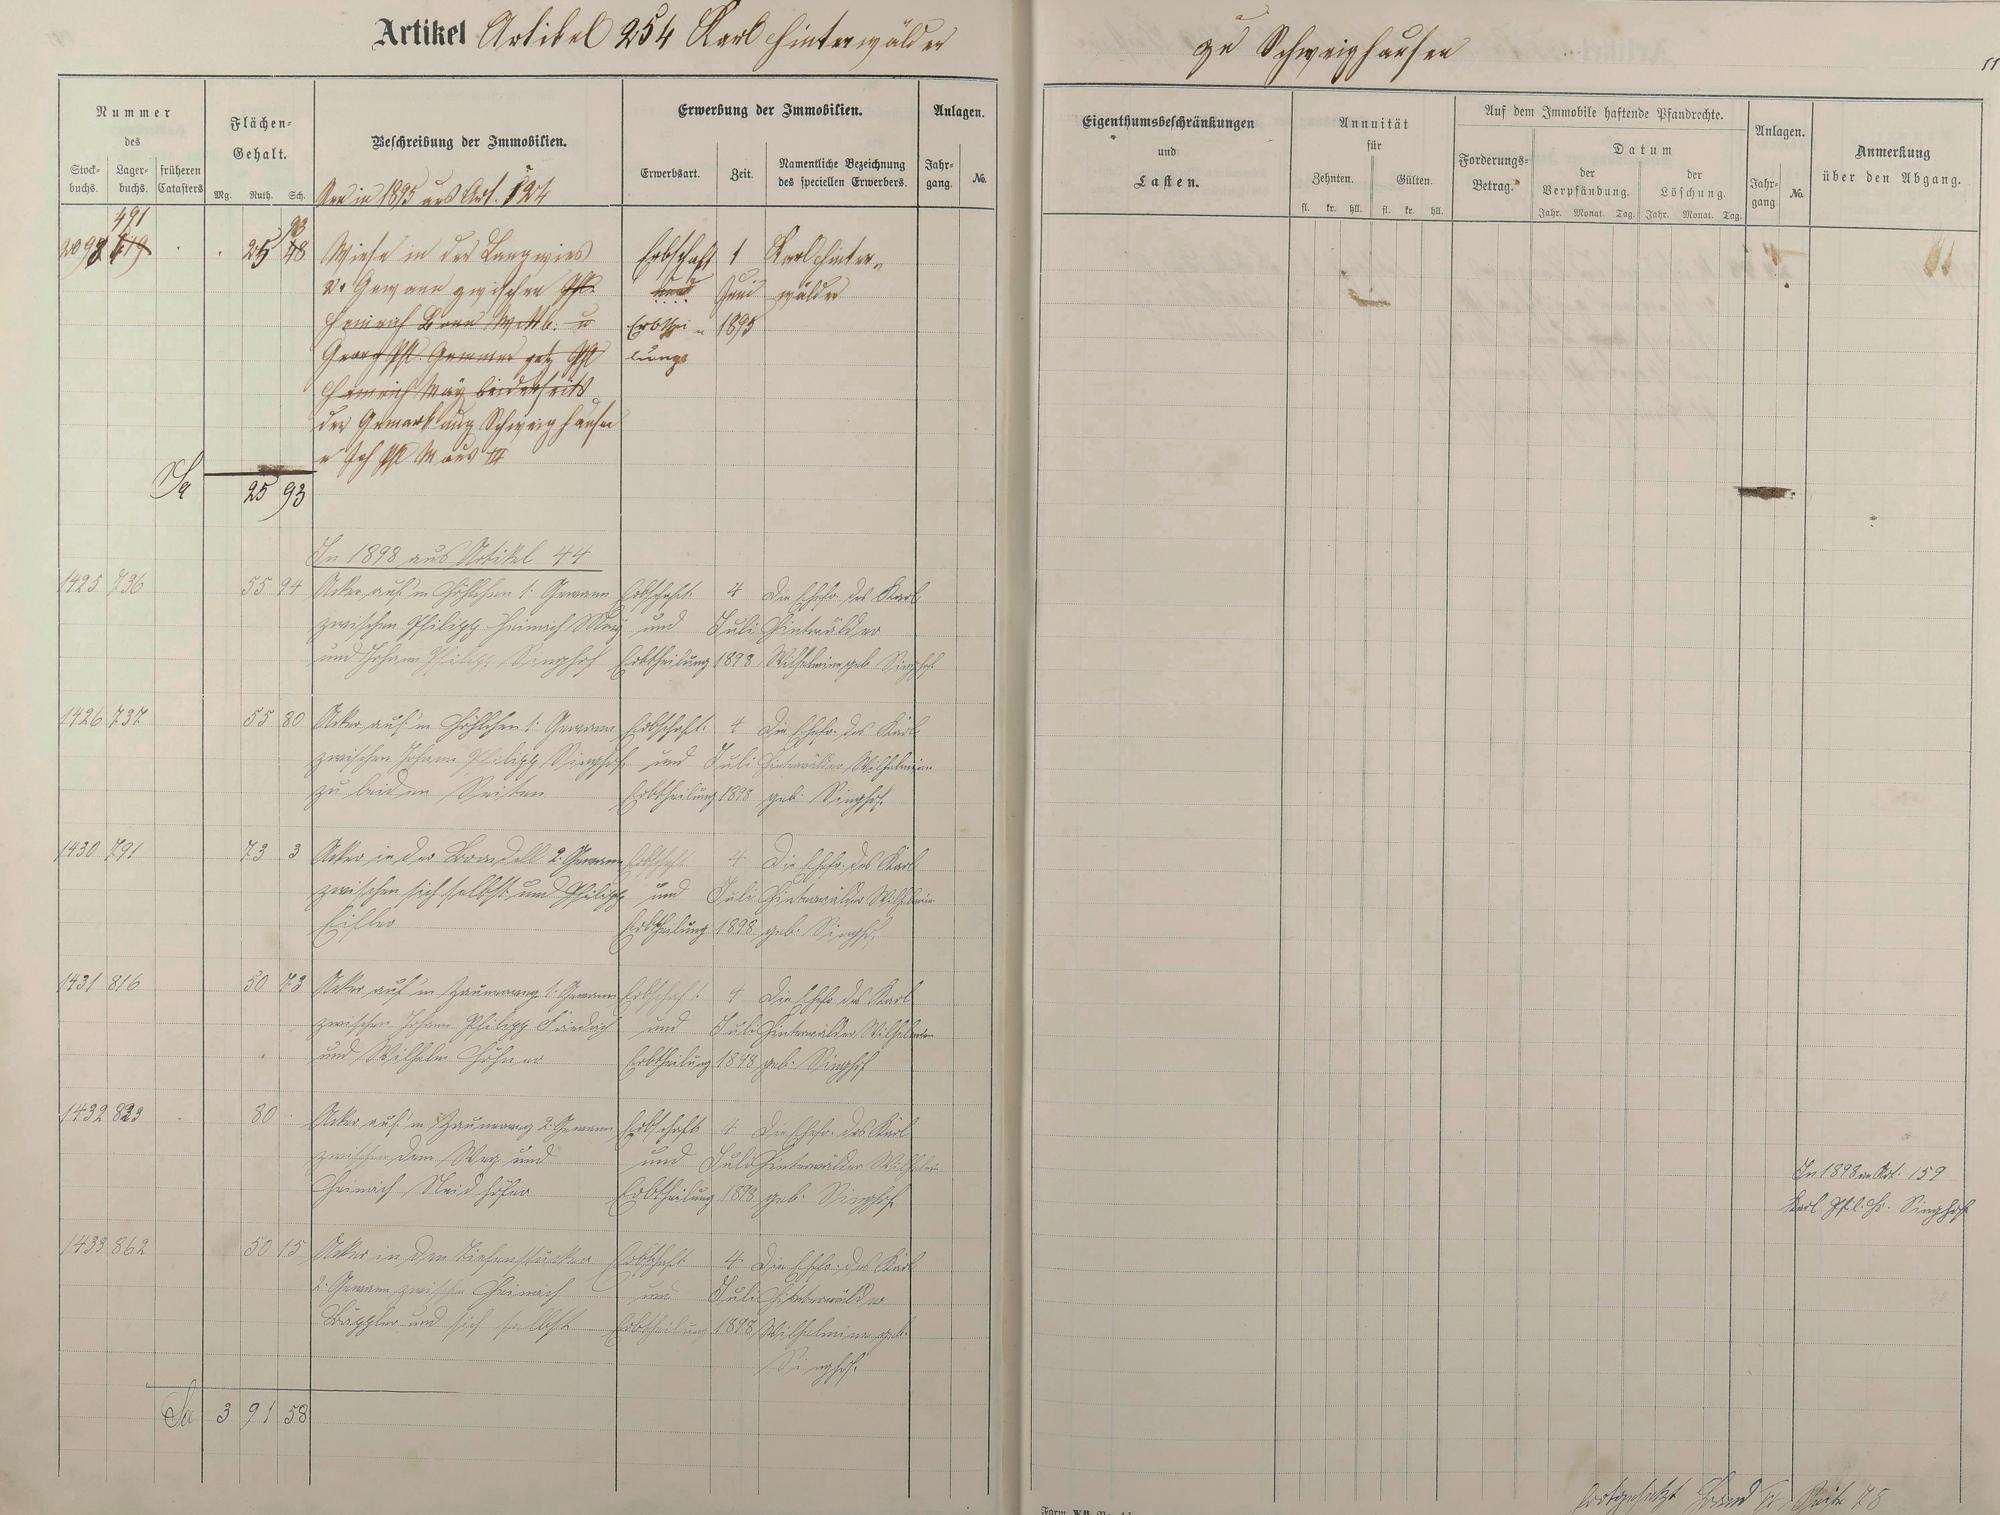 Artikel Artikel 254 Karl Hinterwälder
zu Schweighausen
Nummer
des
Stock-
buchs.
Lager-
buchs.
früheren
Catasters
Flächen-
Gehalt.
Mg. Ruth. Sch.
Beschreibung der Immobilien.
Erwerbung der Immobilien.
Erwerbsart.
Zeit.
Namentliche Bezeichnung
des speciellen Erwerbers.
Anlagen.
Jahr-
gang.
No.
Eigenthumsbeschränkungen
und
Lasten.
Annuität
für
Zehnten.
Gülten.
fl. kr. hll. fl. kr. hll.
Auf dem Immobile haftende Pfandrechte.
Forderungs-
Betrag.
Datum
der
Verpfändung.
der
Löschung.
Jahr. Monat. Tag. Jahr. Monat. Tag.
Anlagen.
Jahr-
gang
No.
Anmerkung
über den Abgang.
in 1895 aus Art. 124
491 93
25 48 Wiese in der Langwies Erbschaft 1 Karl Hinter-
2. Gewann zwischen Phl. und Juni wälder
Heinrich Wittb. u Erbthei- 1895
Georg Phl. Gemmer Phl lungs
Heinrich May beiderseits
der Gemarkung Schweighausen
Phl Maus III
Sa 25 93
In 1898 aus Artikel 44
1425 736 55 94 Acker auf'm Höhlchen 1. Gewann Erbschaft 4 Die Ehefr. des Karl
zwischen Philipp Heinrich May und Juli Hinterwälder
und Johann Philipp Singhof Erbtheilung 1898 Wilhelmine geb Singhof
1426 737 55 80 Acker auf'm Höhlchen 1. Gewann Erbschaft 4 Die Ehefr. des Karl
zwischen Johann Philipp Singhof und Juli Hinterwälder Wilhelmine
zu beiden Seiten Erbtheilung 1898 geb. Singhof.
1430 791 73 3 Acker in der 2. Gewann Erbschaft 4 Die Ehefr. des Karl
zwischen sich selbst und Philipp und Juli Hinterwälder Wilhelmine
Erbtheilung 1898 geb. Singhof.
1431 816 50 73 Acker auf'm 1. Gewann Erbschaft 4 Die Ehefr. des Karl
zwischen Johann Philipp Friedrich und Juli Hinterwälder Wilhelmine
und Wilhelm Höhner Erbtheilung 1898 geb. Singhof
1432 823 80 Acker auf'm 2. Gewann Erbschaft 4 Die Ehefr. des Karl
zwischen dem Weg und und Juli Hinterwälder Wilhelmine
Heinrich Neidhöfer Erbtheilung 1898 geb. Singhof.
In 1898 an Art. 159
Karl Phil. Hr. Singhof
1433 862 50 15 Acker in den Tiefenstücker Erbschaft 4. Die Ehefr. des Karl
2. Gewann zwischen Heinrich und Juli Hinterwälder
Bäppler und sich selbst Erbtheilung 1898 Wilhelmine geb.
Singhof.
Sa 3 91 58
fortgesetzt Band Seite 78